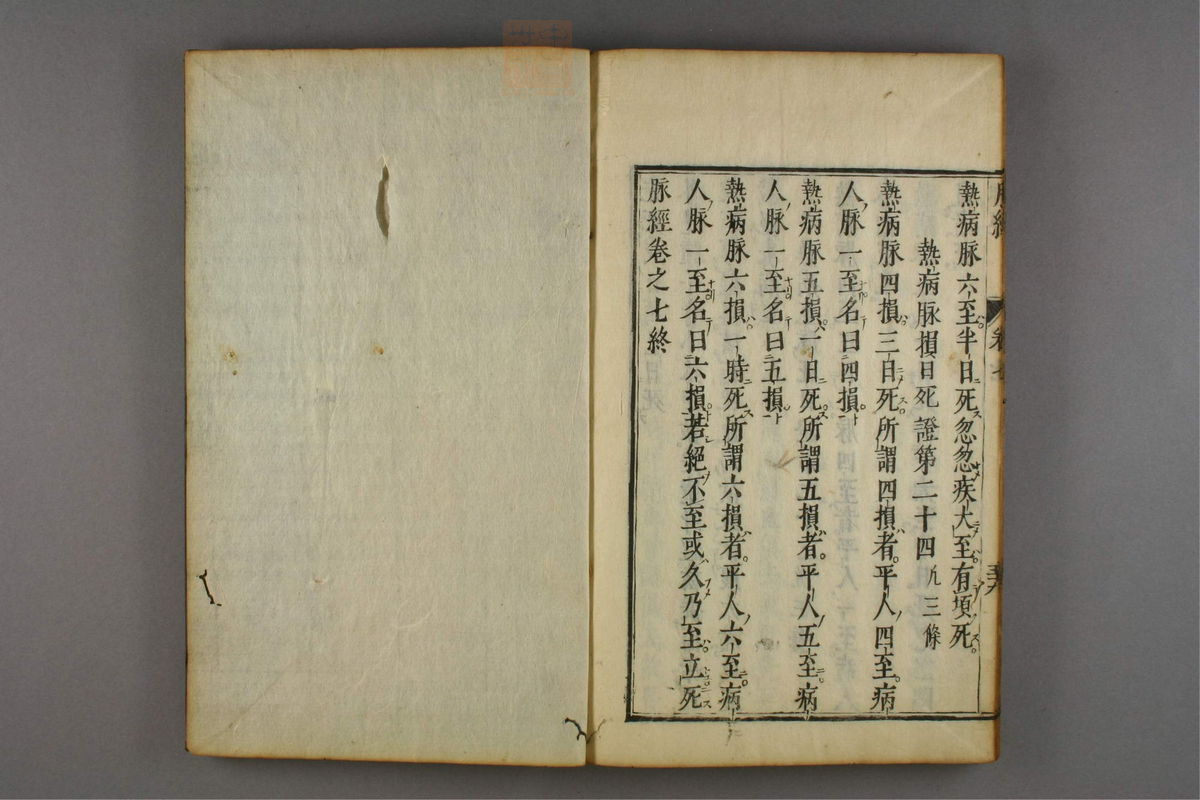 脉經 卷七
熱病脉六至半日死忽忽疾大至有頃死
熱病脉損日死證第二十四 凡三條
熱病脉四損三日死所謂四損者平人四至病
人脉一至名曰四損
熱病脉五損一日死所謂五損者平人五至病
人脉一至名曰五損
熱病脉六損一時死所謂六損者平人六至病
人脉一至名曰六損若絕不至或久乃至立死
脉經卷之七終